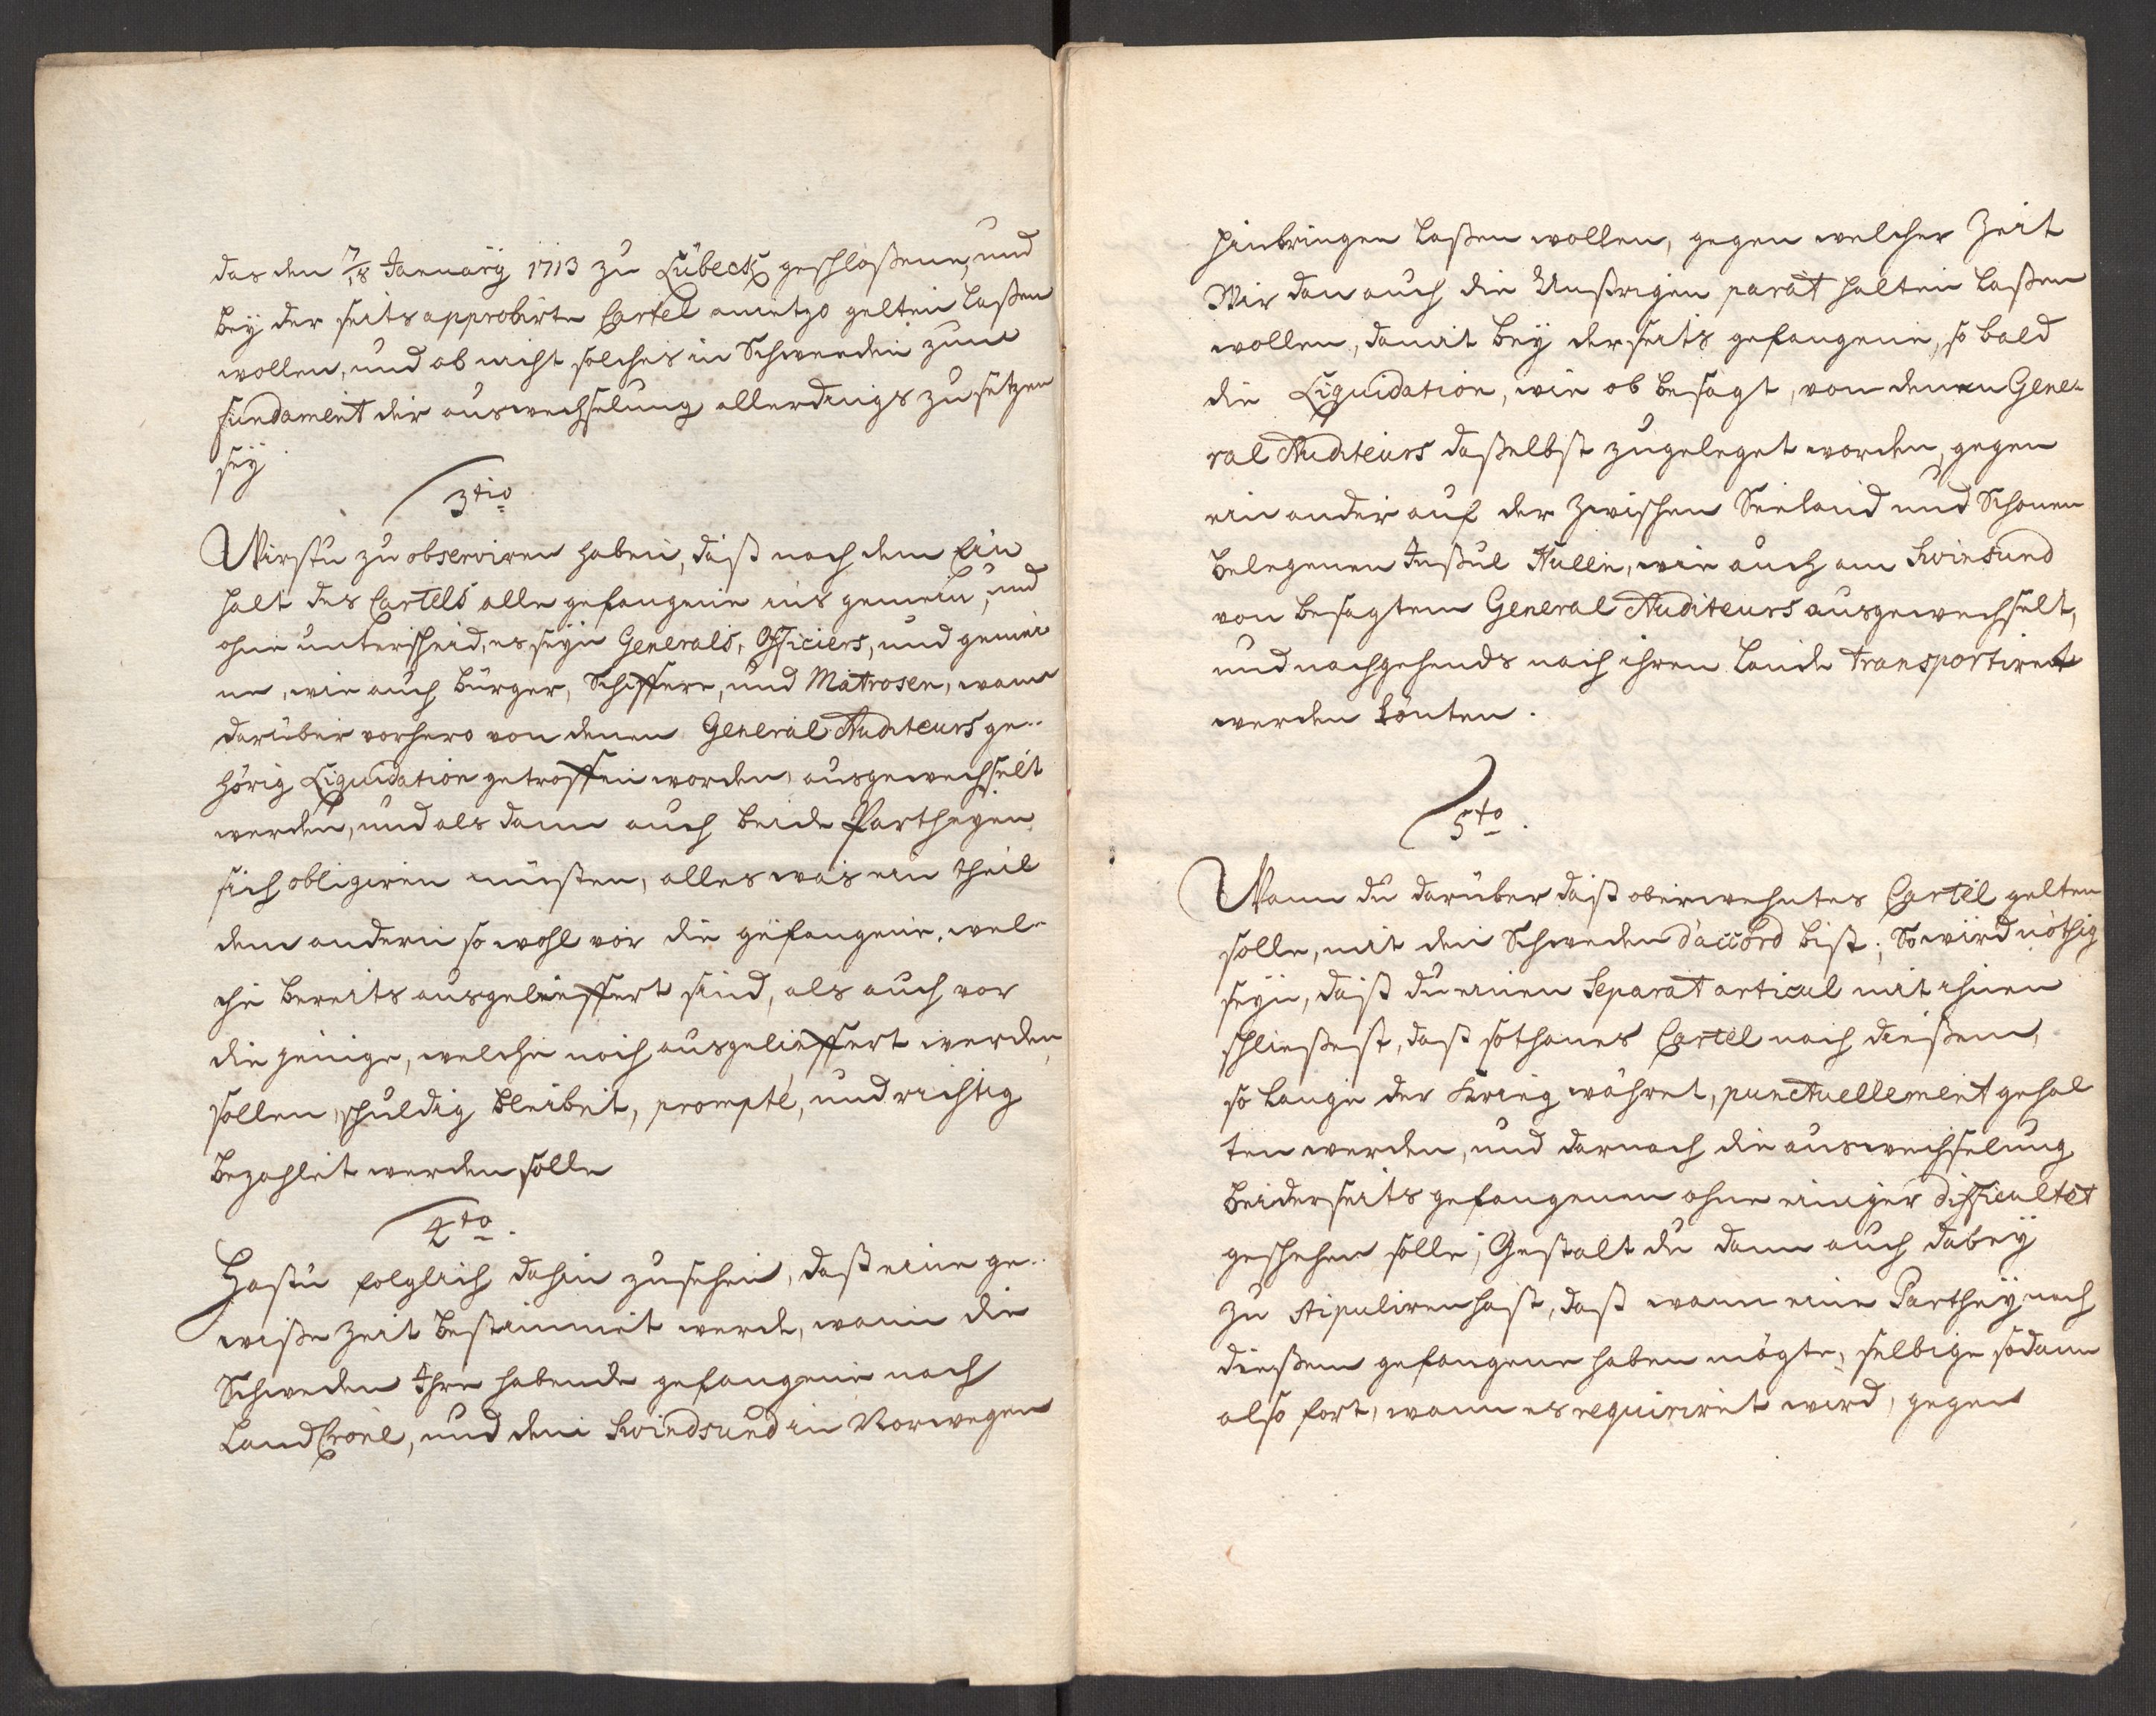 das den 7/18 January 1713 zu Lübeck geschloßene, und
bey der seits approbirte Cartel anietzo gelten laßen
wollen, und ob nicht solches in Schweden zum
fundament der auswechselung allerdings zu setzen
sey
3tio
Wirstu zu observiren haben, daß nach dem Ein
halt des Cartels alle gefangene ins gemein, und
ohne unterscheid, es seyn Generals, Officiers, und gemei
ne, wie auch bürger, Schiffere, und Matrosen, wann
darüber vorhero von denen General Auditeurs ge-
hörig Liquidation getroffen worden, ausgewechselt
werden, und als dann auch beide Partheyen
sich obligiren müßten, alles was ein theil
dem andern so wohl vor die gefangene, wel-
che bereits ausgelieffert sind, als auch vor
die jenige, welche noch ausgelieffert werden
sollen, schuldig bleibet, prompte, und richtig
bezahlet werden solle
4to.
Hastu folglich dahin zusehen, daß eine ge-
wiße Zeit bestimmet werde, wann die
Schweden Ihre habende gefangene nach
Land Crone, und dem Swindsund in Norwegen
hinbringen laßen wollen, gegen welcher Zeit
Wir dan auch die Unßrigen parat halten laßen
wollen, damit bey derseits gefangene, so bald
die Liquidation, wie ob besagt, von denen Gene-
ral Auditeurs daßelbst zugeleget worden, gegen
ein ander auf der zwischen Seeland und Schonen
belegenen Inßul Hulln, wie auch am Swinsund
von besagtem General Auditeurs ausgewechselt,
und nachgehends nach ihren Lande transportiret
werden könten.
5to.
Wann du darüber daß oberwehntes Cartel gelten
solle, mit den Schweden d'accord bist; So wird nöthig
seyn, daß du einen Separat articul mit ihnen
schließest, daß sothanes Cartel nach dießem,
so lange der Krieg währet, punctuellement gehal
ten werden, und darnach die auswechselung
beiderseits gefangenen ohne einiger difficultet
geschehen solle; Gestalt du dann auch dabey
zu stipuliren hast, daß wann eine Parthey nach
dießem gefangene haben mögte, selbige sodann
also fort, wann es requiriret wird, gegen